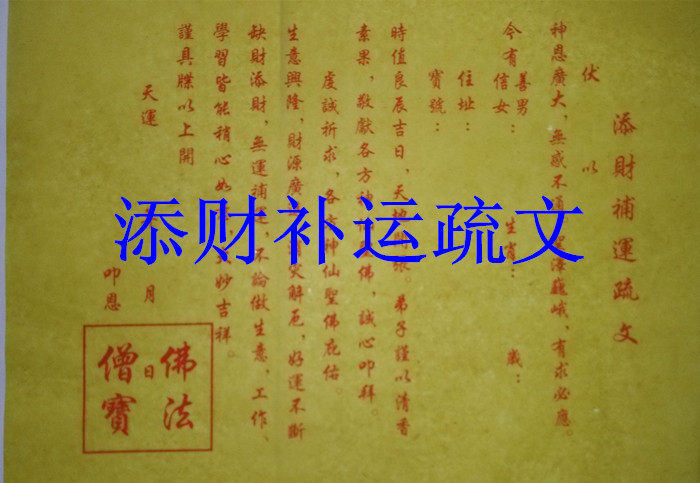 添財補運疏文
伏以
神恩廣大，無感不，澤巍峨，有求必應。
今有善男信女：生肖：歲：
住址：
寶號：
時值良辰吉日，天。弟子謹以清香
素果，敬獻各方神聖佛，誠心叩拜。
虔誠祈求，各方神仙聖佛庇佑。
生意興隆，財源廣災解厄，好運不斷
缺財添財，無運補運，不論做生意、工作、
學習皆能稍心如妙吉祥。
謹具牒以上開
天運月日
叩恩
佛法
僧寶
添财补运疏文